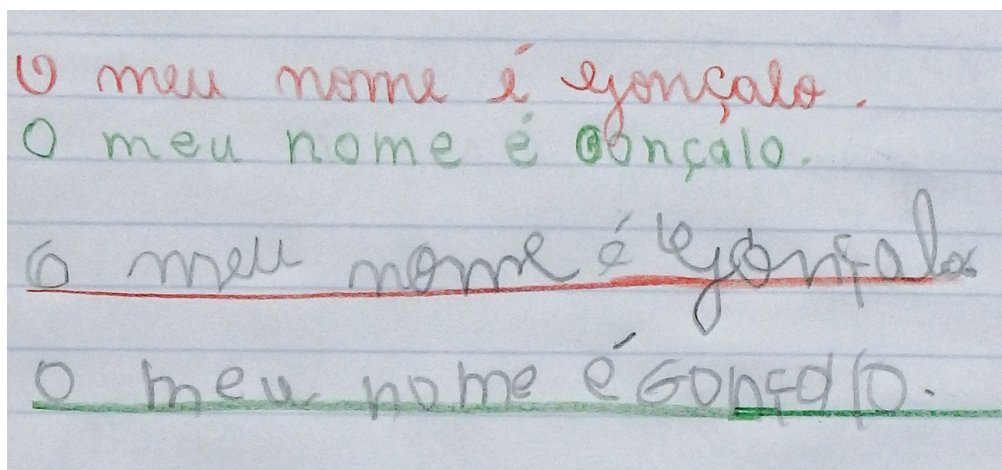 O meu nome é Gonçalo.
O meu nome é Gonçalo.
O meu nome é Gonçalo
O meu nome é Gonçalo.